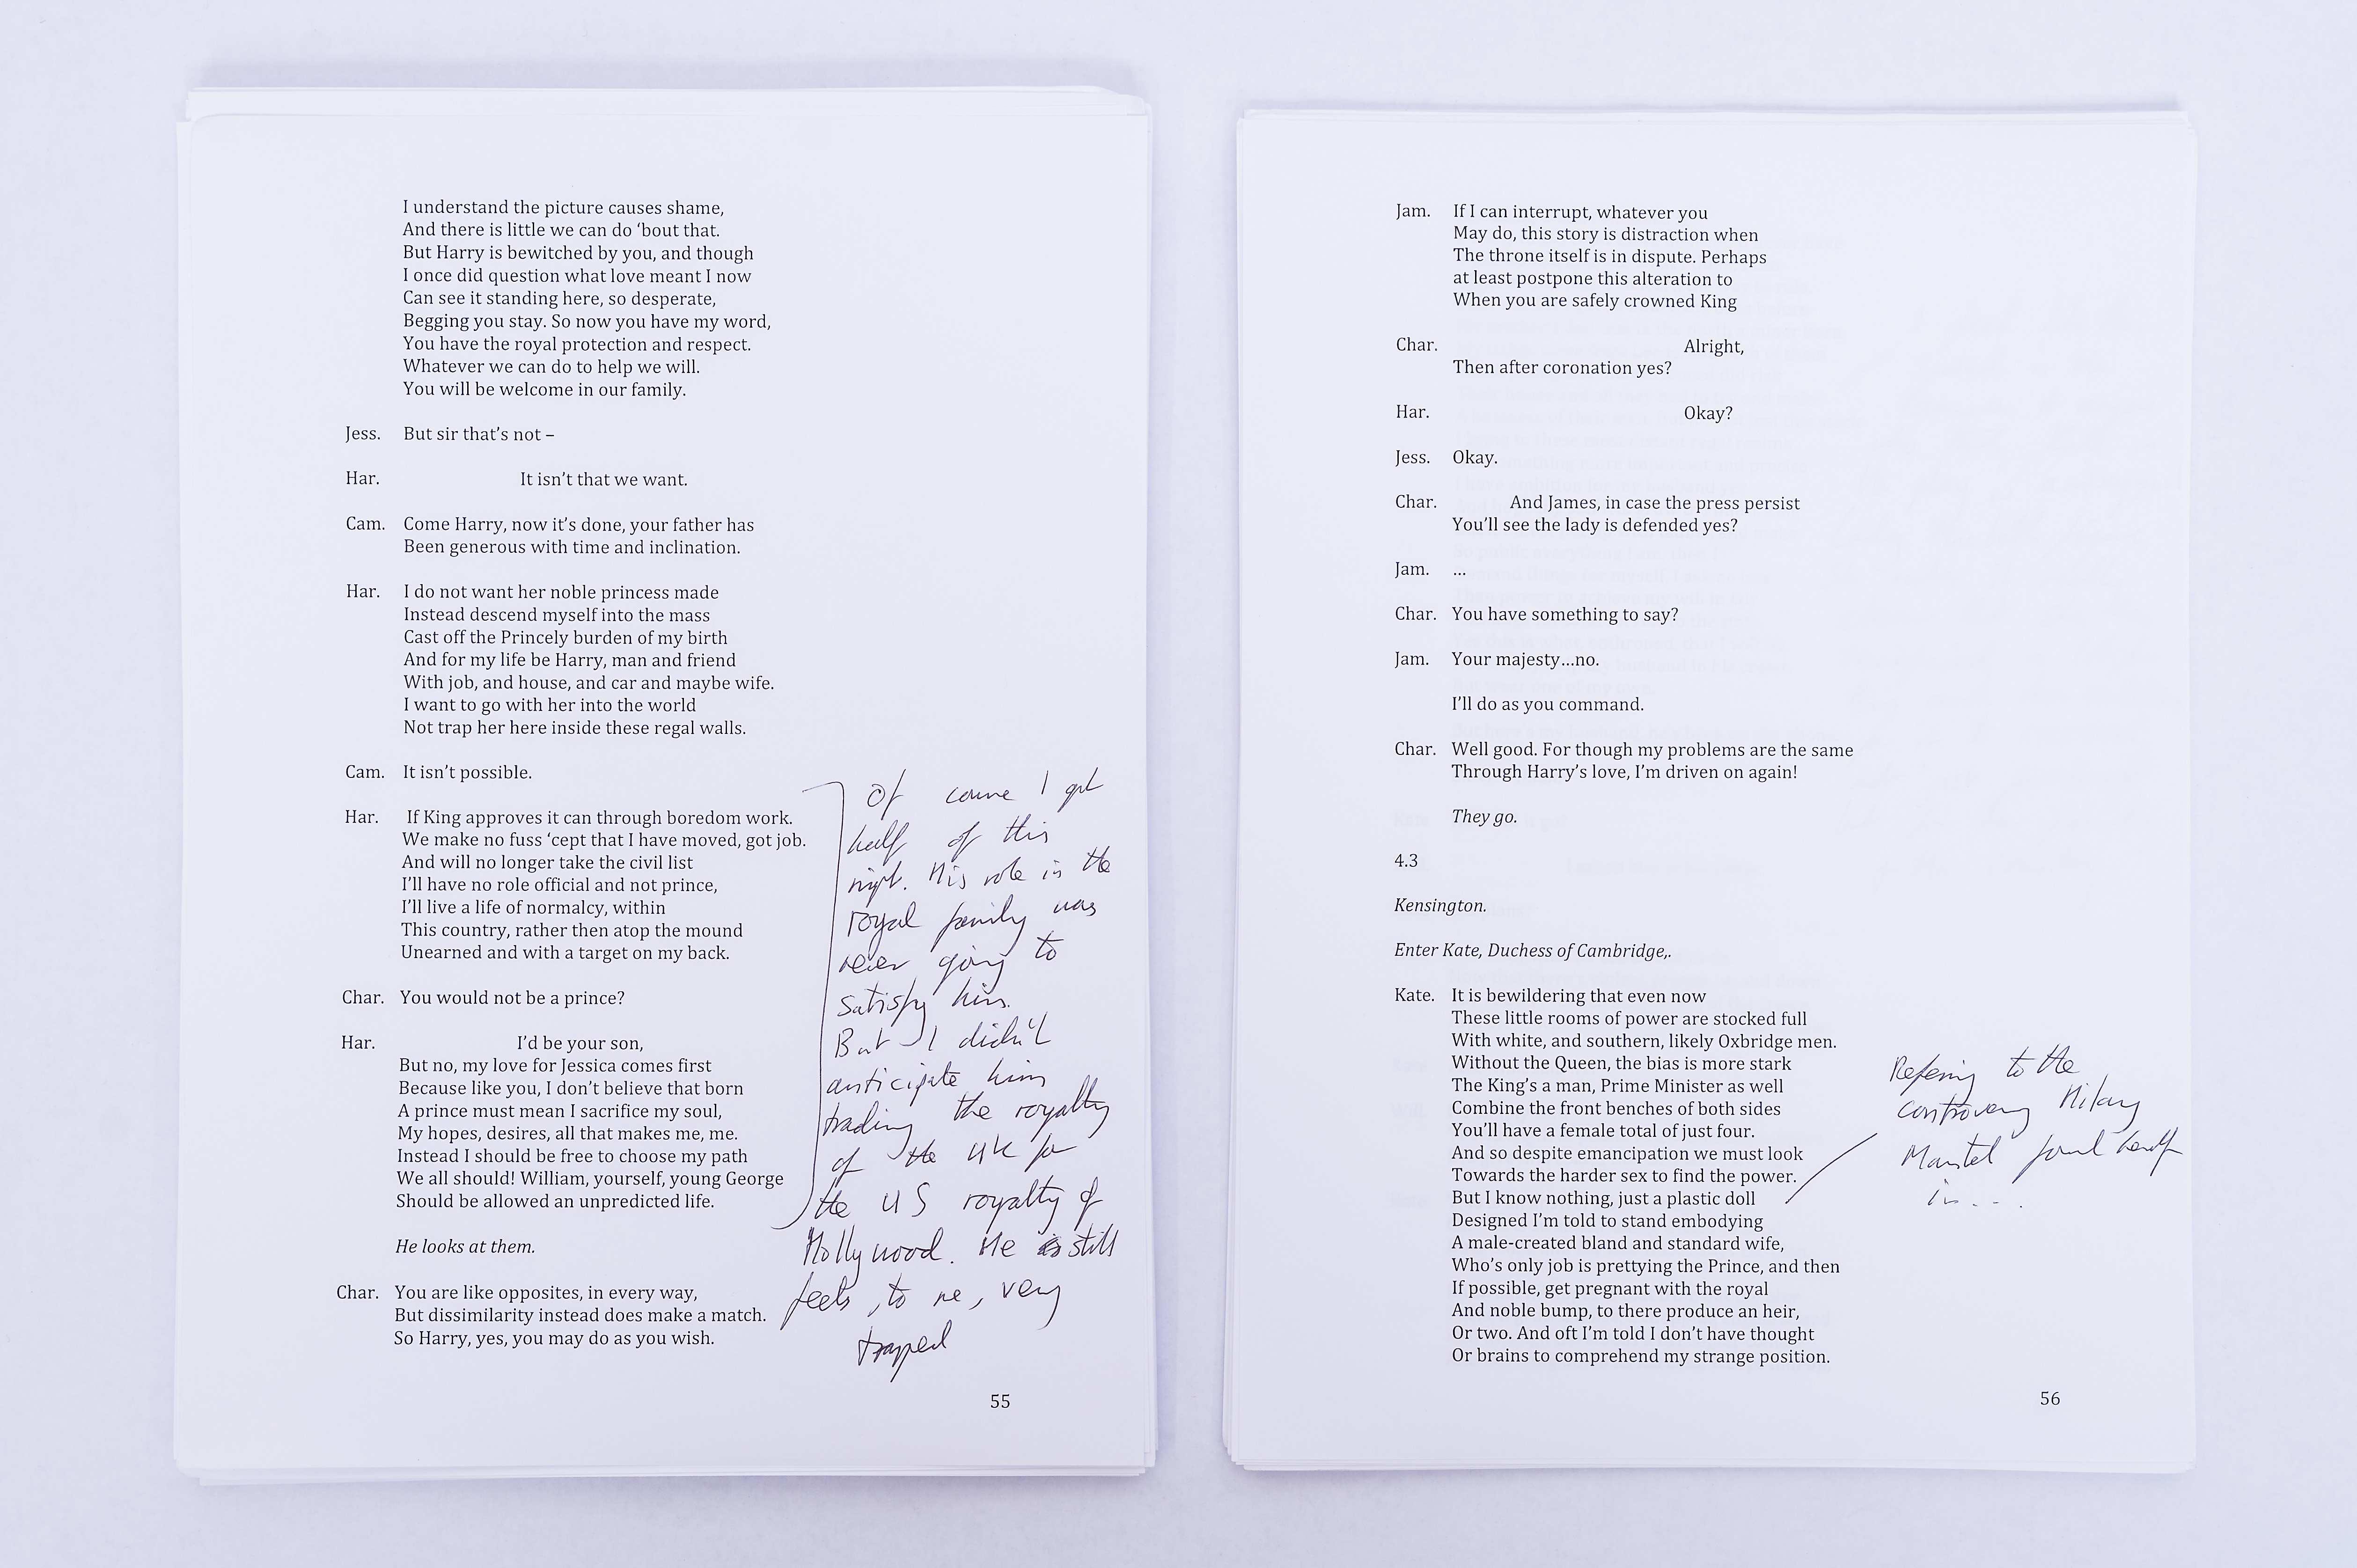 I understand the picture causes shame,
And there is little we can do ‘bout that.
But Harry is bewitched by you, and though
I once did question what love meant I now
Can see it standing here, so desperate,
Begging you stay. So now you have my word,
You have the royal protection and respect.
Whatever we can do to help we will.
You will be welcome in our family.
Jess. But sir that’s not –
Har. It isn’t that we want.
Cam. Come Harry, now it’s done, your father has
Been generous with time and inclination.
Har. I do not want her noble princess made
Instead descend myself into the mass
Cast off the Princely burden of my birth
And for my life be Harry, man and friend
With job, and house, and car and maybe wife.
I want to go with her into the world
Not trap her here inside these regal walls.
Cam. It isn’t possible.
Har. If King approves it can through boredom work.
We make no fuss ‘cept that I have moved, got job.
And will no longer take the civil list
I’ll have no role official and not prince,
I’ll live a life of normalcy, within
This country, rather then atop the mound
Unearned and with a target on my back.
Char. You would not be a prince?
Har. I’d be your son,
But no, my love for Jessica comes first
Because like you, I don’t believe that born
A prince must mean I sacrifice my soul,
My hopes, desires, all that makes me, me.
Instead I should be free to choose my path
We all should! William, yourself, young George
Should be allowed an unpredicted life.
He looks at them.
Char. You are like opposites, in every way,
But dissimilarity instead does make a match.
So Harry, yes, you may do as you wish.
Of course I got
half of this
right. His role in the
royal family was
never going to
satisfy him.
But I didn't
anticipate him
trading the royalty
of the UK for
the US royalty of
Hollywood. He still
feels, to me, very
trapped
55
Jam. If I can interrupt, whatever you
May do, this story is distraction when
The throne itself is in dispute. Perhaps
at least postpone this alteration to
When you are safely crowned King
Char. Alright,
Then after coronation yes?
Har. Okay?
Jess. Okay.
Char. And James, in case the press persist
You’ll see the lady is defended yes?
Jam. ...
Char. You have something to say?
Jam. Your majesty…no.
I’ll do as you command.
Char. Well good. For though my problems are the same
Through Harry’s love, I’m driven on again!
They go.
4.3
Kensington.
Enter Kate, Duchess of Cambridge,.
Kate. It is bewildering that even now
These little rooms of power are stocked full
With white, and southern, likely Oxbridge men.
Without the Queen, the bias is more stark
The King’s a man, Prime Minister as well
Combine the front benches of both sides
You’ll have a female total of just four.
And so despite emancipation we must look
Towards the harder sex to find the power.
But I know nothing, just a plastic doll
Designed I’m told to stand embodying
A male-created bland and standard wife,
Who’s only job is prettying the Prince, and then
If possible, get pregnant with the royal
And noble bump, to there produce an heir,
Or two. And oft I’m told I don’t have thought
Or brains to comprehend my strange position.
Refering to the
controversy Hilary
Mantel found herself
in....
56